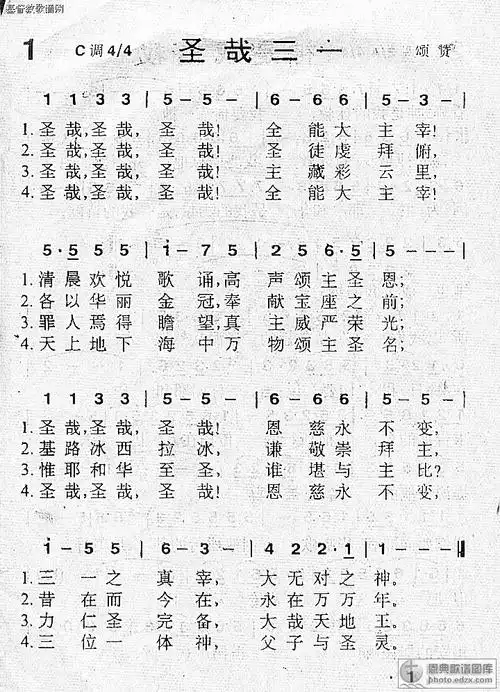 基督教歌谱网
1 C调4/4 圣哉三一 颂赞
1 1 3 3 | 5 - 5 - | 6 - 6 6 | 5 - 3 - |
1.圣哉,圣哉,圣哉! 全能大主宰!
2.圣哉,圣哉,圣哉! 圣徒虔拜俯,
3.圣哉,圣哉,圣哉! 主藏彩云里,
4.圣哉,圣哉,圣哉! 全能大主宰!
5·5 5 5 | i - 7 5 | 2 5 6·5 | 5 - - - |
1.清晨欢悦歌诵,高声颂主圣恩;
2.各以华丽金冠,奉献宝座之前;
3.罪人焉得瞻望,真主威严荣光;
4.天上地下海中万物颂主圣名;
1 1 3 3 | 5 - 5 - | 6 - 6 6 | 5 - 5 - |
1.圣哉,圣哉,圣哉! 恩慈永不变,
2.基路冰西拉冰, 谦敬崇拜主,
3.惟耶和华至圣, 谁堪与主比?
4.圣哉,圣哉,圣哉! 恩慈永不变,
i - 5 5 | 6 - 3 - | 4 2 2·1 | 1 - - - ‖
1.三一之真宰, 大无对之神。
2.昔在而今在, 永在万万年。
3.力仁圣完备, 大哉天地王。
4.三位一体神, 父子与圣灵。
1
恩典歌谱图库
photo.edzx.com